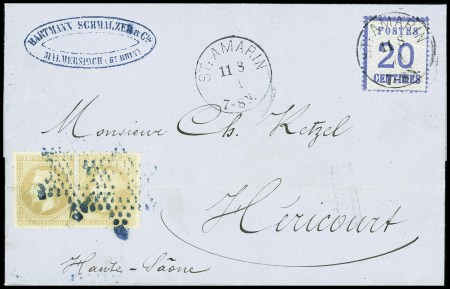 HARTMANN SCHMALZER & Cie
MALMERSPACH (Ht RHIN)
ST. AMARIN
11 8
1
7-8 N.
POSTES
20
CENTIMES
Monsieur Ch. Ketzel
Héricourt
Haute-Saône